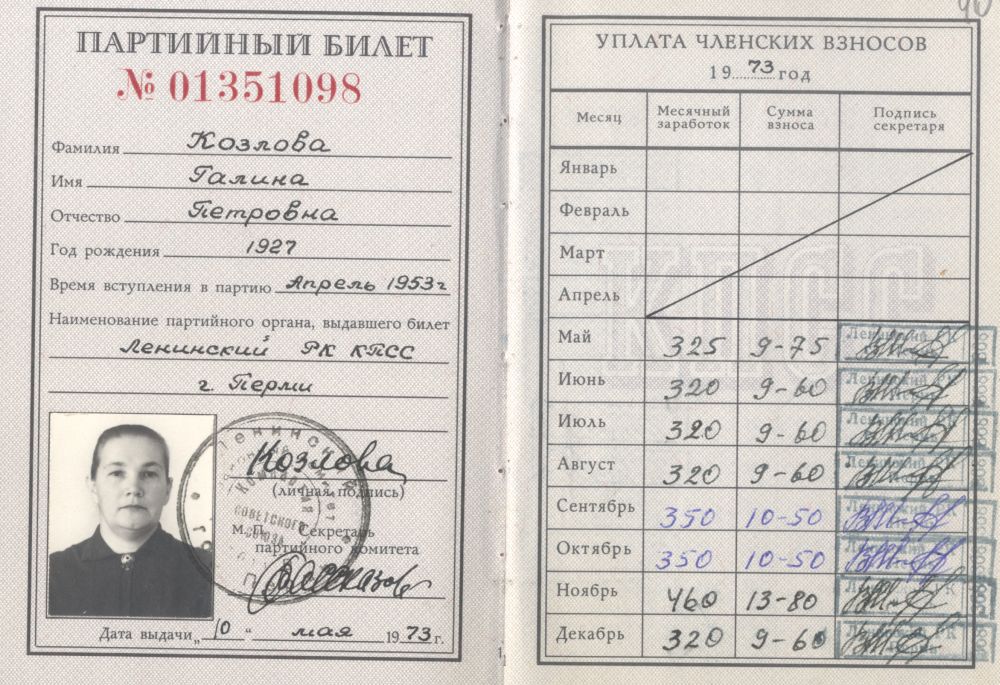 ПАРТИЙНЫЙ БИЛЕТ
№ 01351098
Фамилия Козлова
Имя Галина
Отчество Петровна
Год рождения 1927
Время вступления в партию Апрель 1953 г
Наименование партийного органа, выдавшего билет
Ленинский РК КПСС
г. Перми
Козлова
(личная подпись)
М.П. Секретарь
партийного комитета
Дата выдачи „10“ мая 1973 г.
УПЛАТА ЧЛЕНСКИХ ВЗНОСОВ
1973 год
Месяц Месячный заработок Сумма взноса Подпись секретаря
Январь
Февраль
Март
Апрель
Май 325 9-75
Июнь 320 9-60
Июль 320 9-60
Август 320 9-60
Сентябрь 350 10-50
Октябрь 350 10-50
Ноябрь 460 13-80
Декабрь 320 9-60